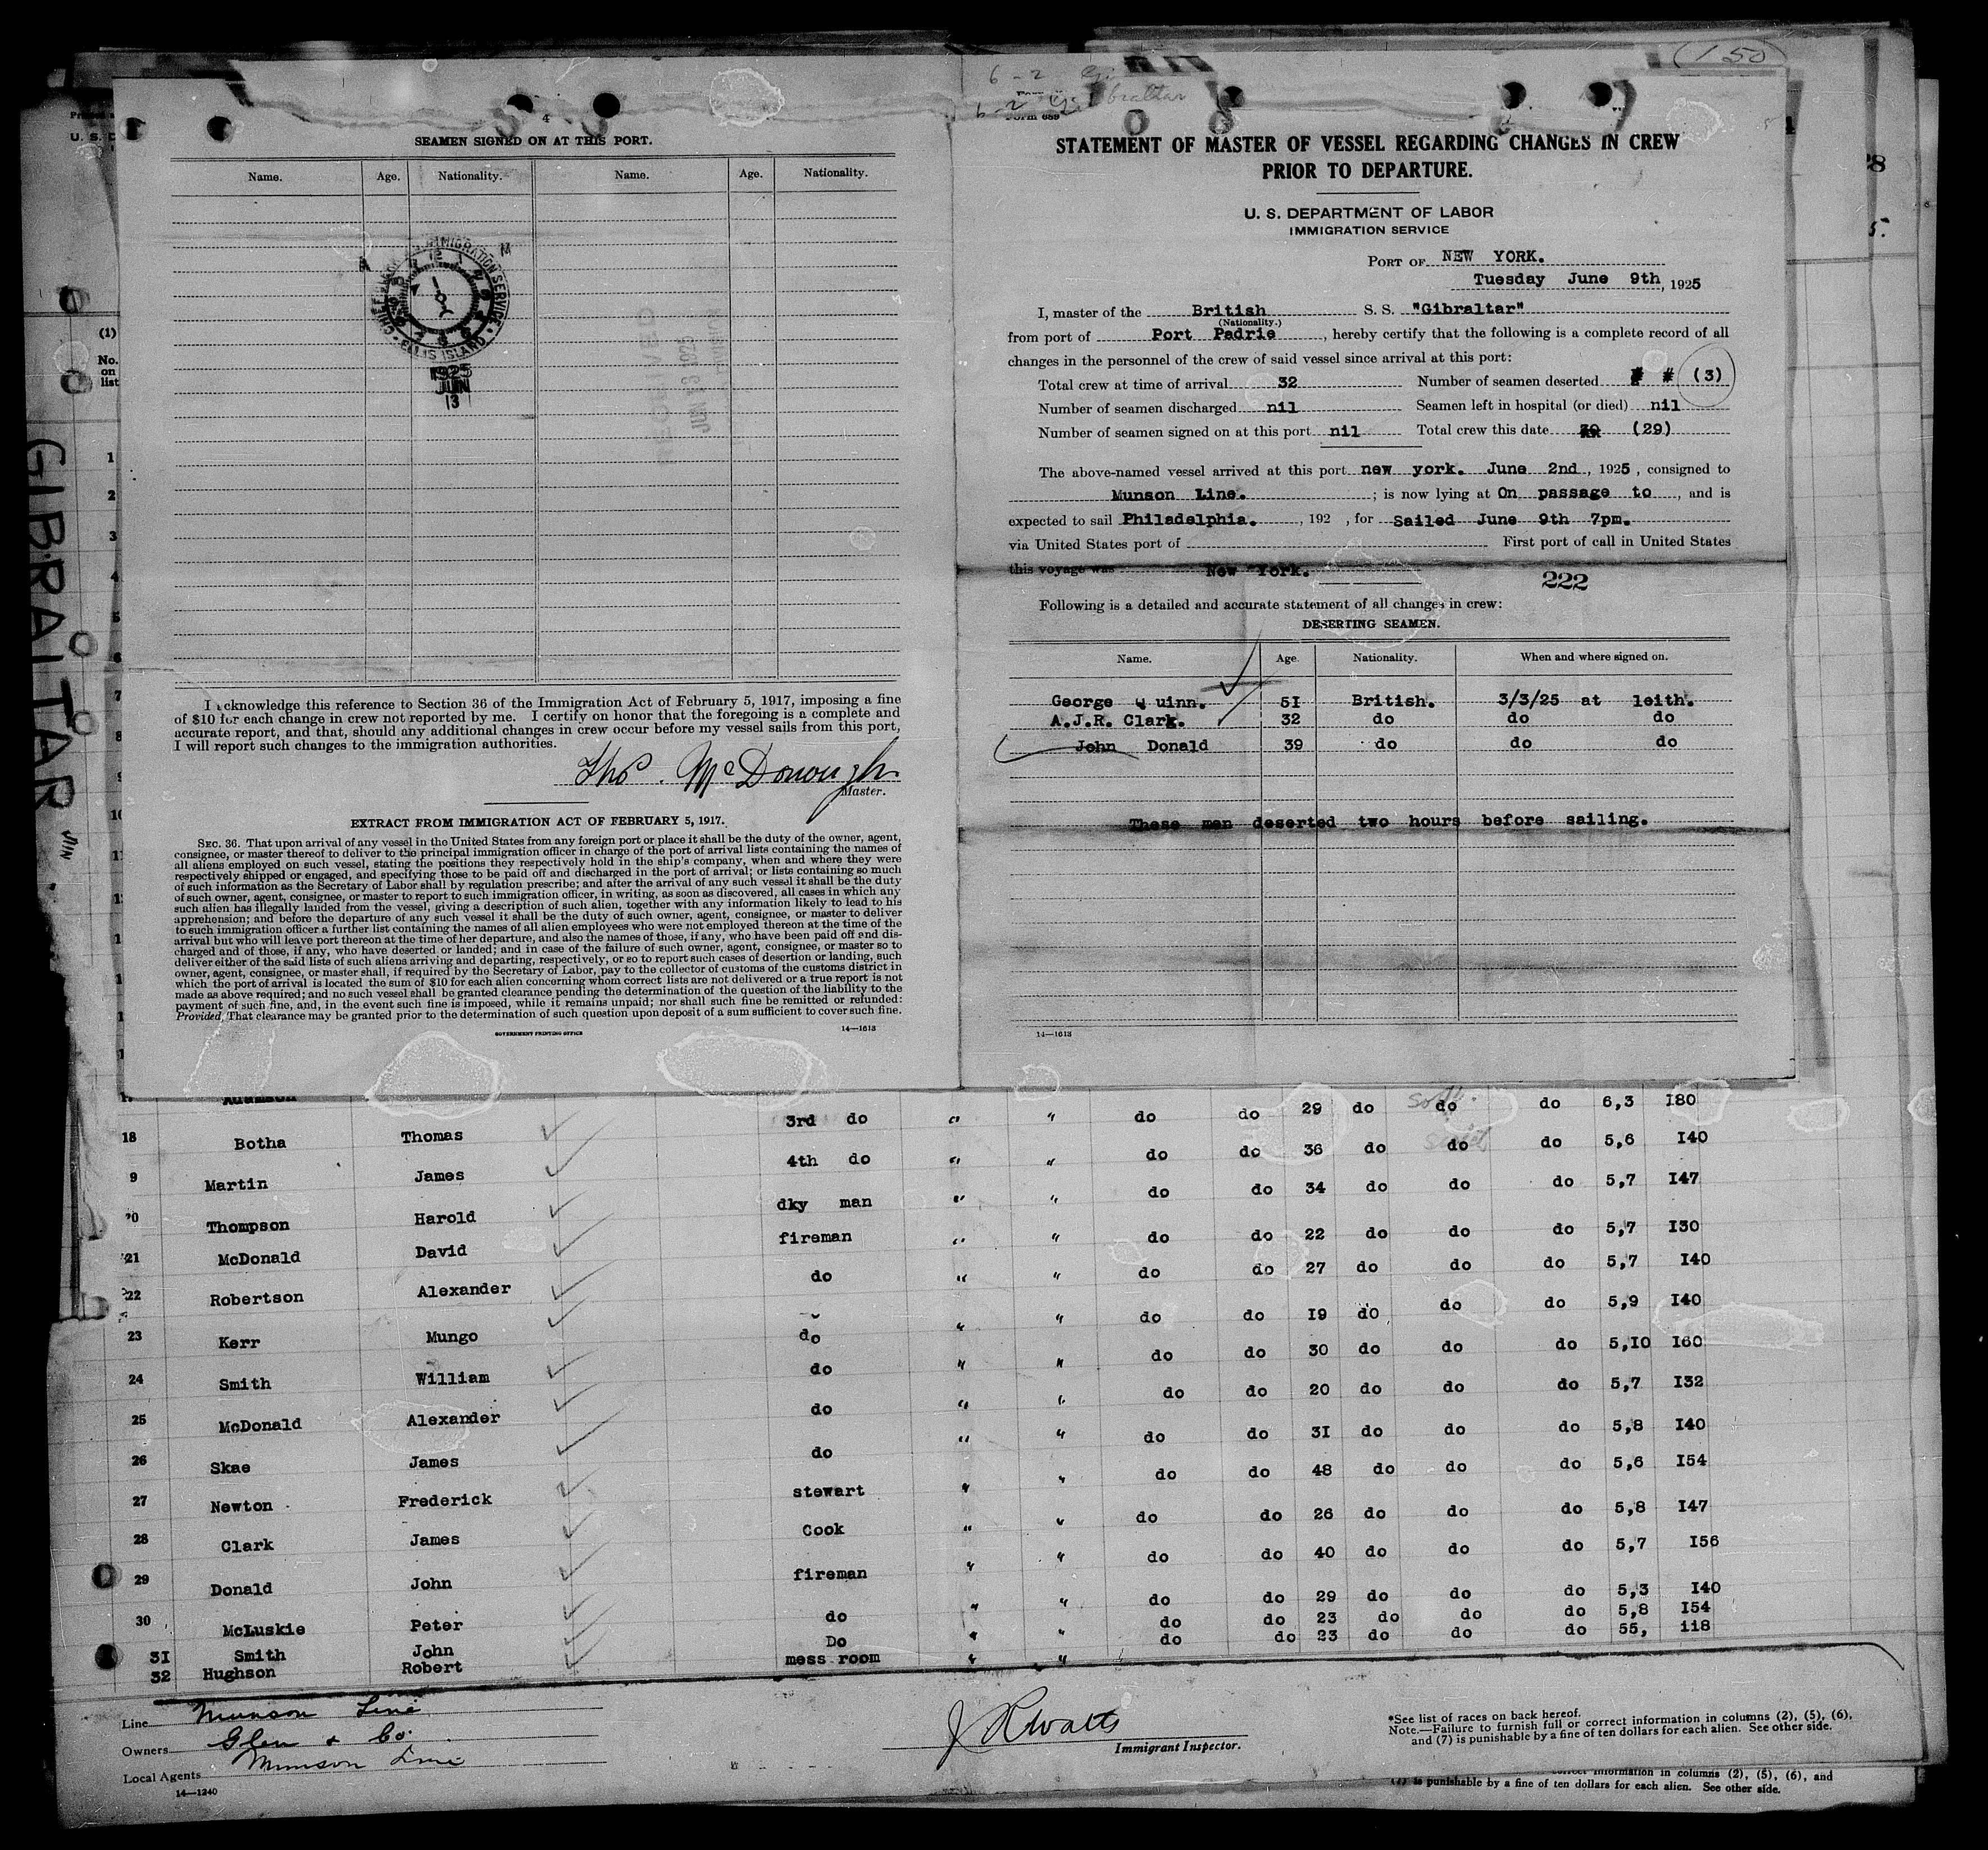 4
SEAMEN SIGNED ON AT THIS PORT.
Name. Age. Nationality. Name. Age. Nationality.
IMMIGRATION SERVICE
ELLIS ISLAND
1925
JUN
13
I acknowledge this reference to Section 36 of the Immigration Act of February 5, 1917, imposing a fine
of $10 for each change in crew not reported by me. I certify on honor that the foregoing is a complete and
accurate report, and that, should any additional changes in crew occur before my vessel sails from this port,
I will report such changes to the immigration authorities.
Thos. McDonough
Master.
EXTRACT FROM IMMIGRATION ACT OF FEBRUARY 5, 1917.
SEC. 36. That upon arrival of any vessel in the United States from any foreign port or place it shall be the duty of the owner, agent,
consignee, or master thereof to deliver to the principal immigration officer in charge of the port of arrival lists containing the names of
all aliens employed on such vessel, stating the positions they respectively hold in the ship's company, when and where they were
respectively shipped or engaged, and specifying those to be paid off and discharged in the port of arrival; or lists containing so much
of such information as the Secretary of Labor shall by regulation prescribe; and after the arrival of any such vessel it shall be the duty
of such owner, agent, consignee, or master to report to such immigration officer, in writing, as soon as discovered, all cases in which any
such alien has illegally landed from the vessel, giving a description of such alien, together with any information likely to lead to his
apprehension; and before the departure of any such vessel it shall be the duty of such owner, agent, consignee, or master to deliver
to such immigration officer a further list containing the names of all alien employees who were not employed thereon at the time of the
arrival but who will leave port thereon at the time of her departure, and also the names of those, if any, who have been paid off and dis-
charged and of those, if any, who have deserted or landed; and in case of the failure of such owner, agent, consignee, or master so to
deliver either of the said lists of such aliens arriving and departing, respectively, or so to report such cases of desertion or landing, such
owner, agent, consignee, or master shall, if required by the Secretary of Labor, pay to the collector of customs of the customs district in
which the port of arrival is located the sum of $10 for each alien concerning whom correct lists are not delivered or a true report is not
made as above required; and no such vessel shall be granted clearance pending the determination of the question of the liability to the
payment of such fine, and, in the event such fine is imposed, while it remains unpaid; nor shall such fine be remitted or refunded:
Provided, That clearance may be granted prior to the determination of such question upon deposit of a sum sufficient to cover such fine.
GOVERNMENT PRINTING OFFICE 14—1613
(150)
6-2 Gibraltar
Form 689
STATEMENT OF MASTER OF VESSEL REGARDING CHANGES IN CREW
PRIOR TO DEPARTURE.
U. S. DEPARTMENT OF LABOR
IMMIGRATION SERVICE
PORT OF NEW YORK.
Tuesday June 9th, 1925
I, master of the British S. S. "Gibraltar"
(Nationality.)
from port of Port Padrie, hereby certify that the following is a complete record of all
changes in the personnel of the crew of said vessel since arrival at this port:
Total crew at time of arrival 32 Number of seamen deserted # # (3)
Number of seamen discharged nil Seamen left in hospital (or died) nil
Number of seamen signed on at this port nil Total crew this date 30 (29)
The above-named vessel arrived at this port new york. June 2nd, 1925, consigned to
Munson Line. ; is now lying at On passage to, and is
expected to sail Philadelphia. , 192 , for Sailed June 9th 7pm.
via United States port of First port of call in United States
this voyage was New York.
222
Following is a detailed and accurate statement of all changes in crew:
DESERTING SEAMEN.
Name. Age. Nationality. When and where signed on.
George Quinn. 5I British. 3/3/25 at leith.
A.J.R. Clark. 32 do do do
John Donald 39 do do do
These men deserted two hours before sailing.
14—1613
GIBRALTAR
(1)
No.
on
list
1
2
3
4
5
6
7
8
Adamson 3rd do " " do do 29 do do do 6,3 I80
18 Botha Thomas 4th do " " do do 36 do do do 5,6 I40
9 Martin James dky man " " do do 34 do do do 5,7 I47
20 Thompson Harold fireman " " do do 22 do do do 5,7 I30
21 McDonald David do " " do do 27 do do do 5,7 I40
22 Robertson Alexander do " " do do I9 do do do 5,9 I40
23 Kerr Mungo do " " do do 30 do do do 5,I0 I60
24 Smith William do " " do do 20 do do do 5,7 I32
25 McDonald Alexander do " " do do 3I do do do 5,8 I40
26 Skae James do " " do do 48 do do do 5,6 I54
27 Newton Frederick stewart " " do do 26 do do do 5,8 I47
28 Clark James Cook " " do do 40 do do do 5,7 I56
29 Donald John fireman " " do do 29 do do do 5,3 I40
30 McLuskie Peter do " " do do 23 do do do 5,8 I54
3I Smith John Do " " do do 23 do do do 55, 118
32 Hughson Robert mess room " "
Line Munson Line
Owners Glen & Co.
Local Agents Munson Line
14—1240
J R Watts
Immigrant Inspector.
*See list of races on back hereof.
Note.—Failure to furnish full or correct information in columns (2), (5), (6),
and (7) is punishable by a fine of ten dollars for each alien. See other side.
correct information in columns (2), (5), (6), and
(7) is punishable by a fine of ten dollars for each alien. See other side.